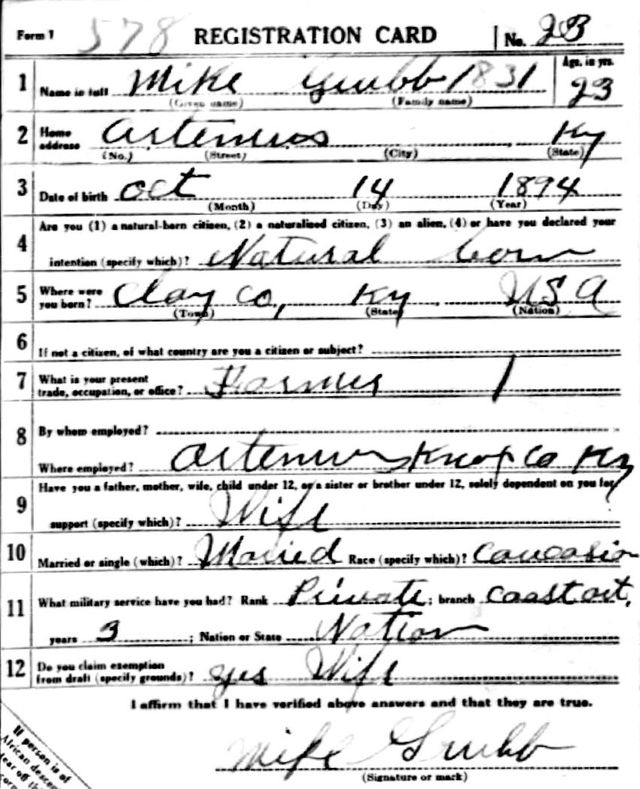 Form 1 578 REGISTRATION CARD No. 23
1 Name in full Mike Grubb 1831 Age, in yrs.
(Given name) (Family name) 23
2 Home address Artemus Ky
(No.) (Street) (City) (State)
3 Date of birth Oct 14 1894
(Month) (Day) (Year)
4 Are you (1) a natural-born citizen, (2) a naturalized citizen, (3) an alien, (4) or have you declared your
intention (specify which)? Natural born
5 Where were you born? Clay Co, Ky USA
(Town) (State) (Nation)
6 If not a citizen, of what country are you a citizen or subject?
7 What is your present trade, occupation, or office? Farmer 1
8 By whom employed?
Where employed? Artemus Knox Co Ky
9 Have you a father, mother, wife, child under 12, or a sister or brother under 12, solely dependent on you for
support (specify which)? Wife
10 Married or single (which)? Married Race (specify which)? Caucasian
11 What military service have you had? Rank Private ; branch Coast art,
years 3 ; Nation or State Nation
12 Do you claim exemption from draft (specify grounds)? yes Wife
I affirm that I have verified above answers and that they are true.
Mike Grubb
(Signature or mark)
If person is of
African desce
tear off
cor